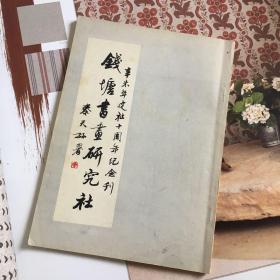 辛未年建社十周年纪念刊
錢塘書畫研究社
秦天孙署